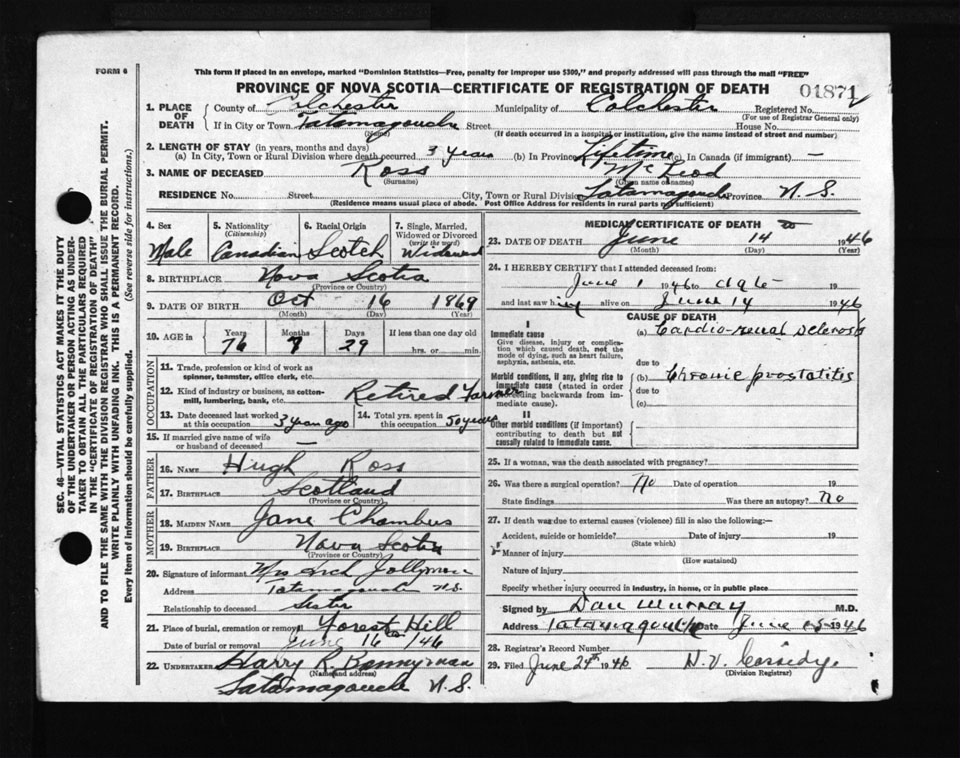 FORM 6
This form if placed in an envelope, marked "Dominion Statistics—Free, penalty for improper use $300," and properly addressed will pass through the mail "FREE"
PROVINCE OF NOVA SCOTIA—CERTIFICATE OF REGISTRATION OF DEATH
01871
1. PLACE OF DEATH County of Colchester Municipality of Colchester Registered No.
(For use of Registrar General only)
If in City or Town Tatamagouche Street House No.
(Name) (If death occurred in a hospital or institution, give the name instead of street and number)
2. LENGTH OF STAY (in years, months and days)
(a) In City, Town or Rural Division where death occurred 3 years (b) In Province Lifetime (c) In Canada (if immigrant) —
3. NAME OF DECEASED Ross McLeod
(Surname) (Given name or names)
RESIDENCE No. Street City, Town or Rural Division Tatamagouche Province N.S.
(Residence means usual place of abode. Post Office Address for residents in rural parts not sufficient)
4. Sex Male
5. Nationality (Citizenship) Canadian
6. Racial Origin Scotch
7. Single, Married, Widowed or Divorced (write the word) Widowed
8. BIRTHPLACE Nova Scotia
(Province or Country)
9. DATE OF BIRTH Oct 16 1869
(Month) (Day) (Year)
10. AGE in Years 76 Months 8 Days 29 If less than one day old hrs. or min.
OCCUPATION
11. Trade, profession or kind of work as spinner, teamster, office clerk, etc.
12. Kind of industry or business, as cotton-mill, lumbering, bank, etc. Retired Farmer
13. Date deceased last worked at this occupation 3 years ago
14. Total yrs. spent in this occupation 50 years
15. If married give name of wife or husband of deceased —
FATHER
16. Name Hugh Ross
17. Birthplace Scotland
(Province or Country)
MOTHER
18. Maiden Name Jane Chambers
19. Birthplace Nova Scotia
(Province or Country)
20. Signature of informant Mrs Arch Jollymore
Address Tatamagouche N.S.
Relationship to deceased Sister
21. Place of burial, cremation or removal Forest Hill
Date of burial or removal June 16 /46
22. UNDERTAKER Harry R. Bonnyman
(Name and address)
Tatamagouche N.S.
MEDICAL CERTIFICATE OF DEATH
23. DATE OF DEATH June 14 1946
(Month) (Day)
24. I HEREBY CERTIFY that I attended deceased from:
June 1 1946 to 19
and last saw him alive on June 14 1946
CAUSE OF DEATH
I
Immediate cause
Give disease, injury or complication which caused death, not the mode of dying, such as heart failure, asphyxia, asthenia, etc.
(a) Cardio-renal sclerosis
due to
Morbid conditions, if any, giving rise to immediate cause (stated in order proceeding backwards from immediate cause).
(b) Chronic prostatitis
due to
(c)
II
Other morbid conditions (if important) contributing to death but not causally related to immediate cause.
25. If a woman, was the death associated with pregnancy?
26. Was there a surgical operation? No Date of operation 19
State findings Was there an autopsy? No
27. If death was due to external causes (violence) fill in also the following:—
Accident, suicide or homicide? Date of injury 19
(State which)
Manner of injury
(How sustained)
Nature of injury
Specify whether injury occurred in industry, in home, or in public place
Signed by Dan Murray M.D.
Address Tatamagouche Date June 1946
28. Registrar's Record Number
29. Filed June 24th 1946 N. V. Cassidy
(Division Registrar)
SEC. 46—VITAL STATISTICS ACT MAKES IT THE DUTY OF THE UNDERTAKER OR PERSON ACTING AS UNDERTAKER TO OBTAIN ALL THE PARTICULARS REQUIRED IN THE "CERTIFICATE OF REGISTRATION OF DEATH" AND TO FILE THE SAME WITH THE DIVISION REGISTRAR WHO SHALL ISSUE THE BURIAL PERMIT.
WRITE PLAINLY WITH UNFADING INK. THIS IS A PERMANENT RECORD.
Every item of Information should be carefully supplied. (See reverse side for instructions.)